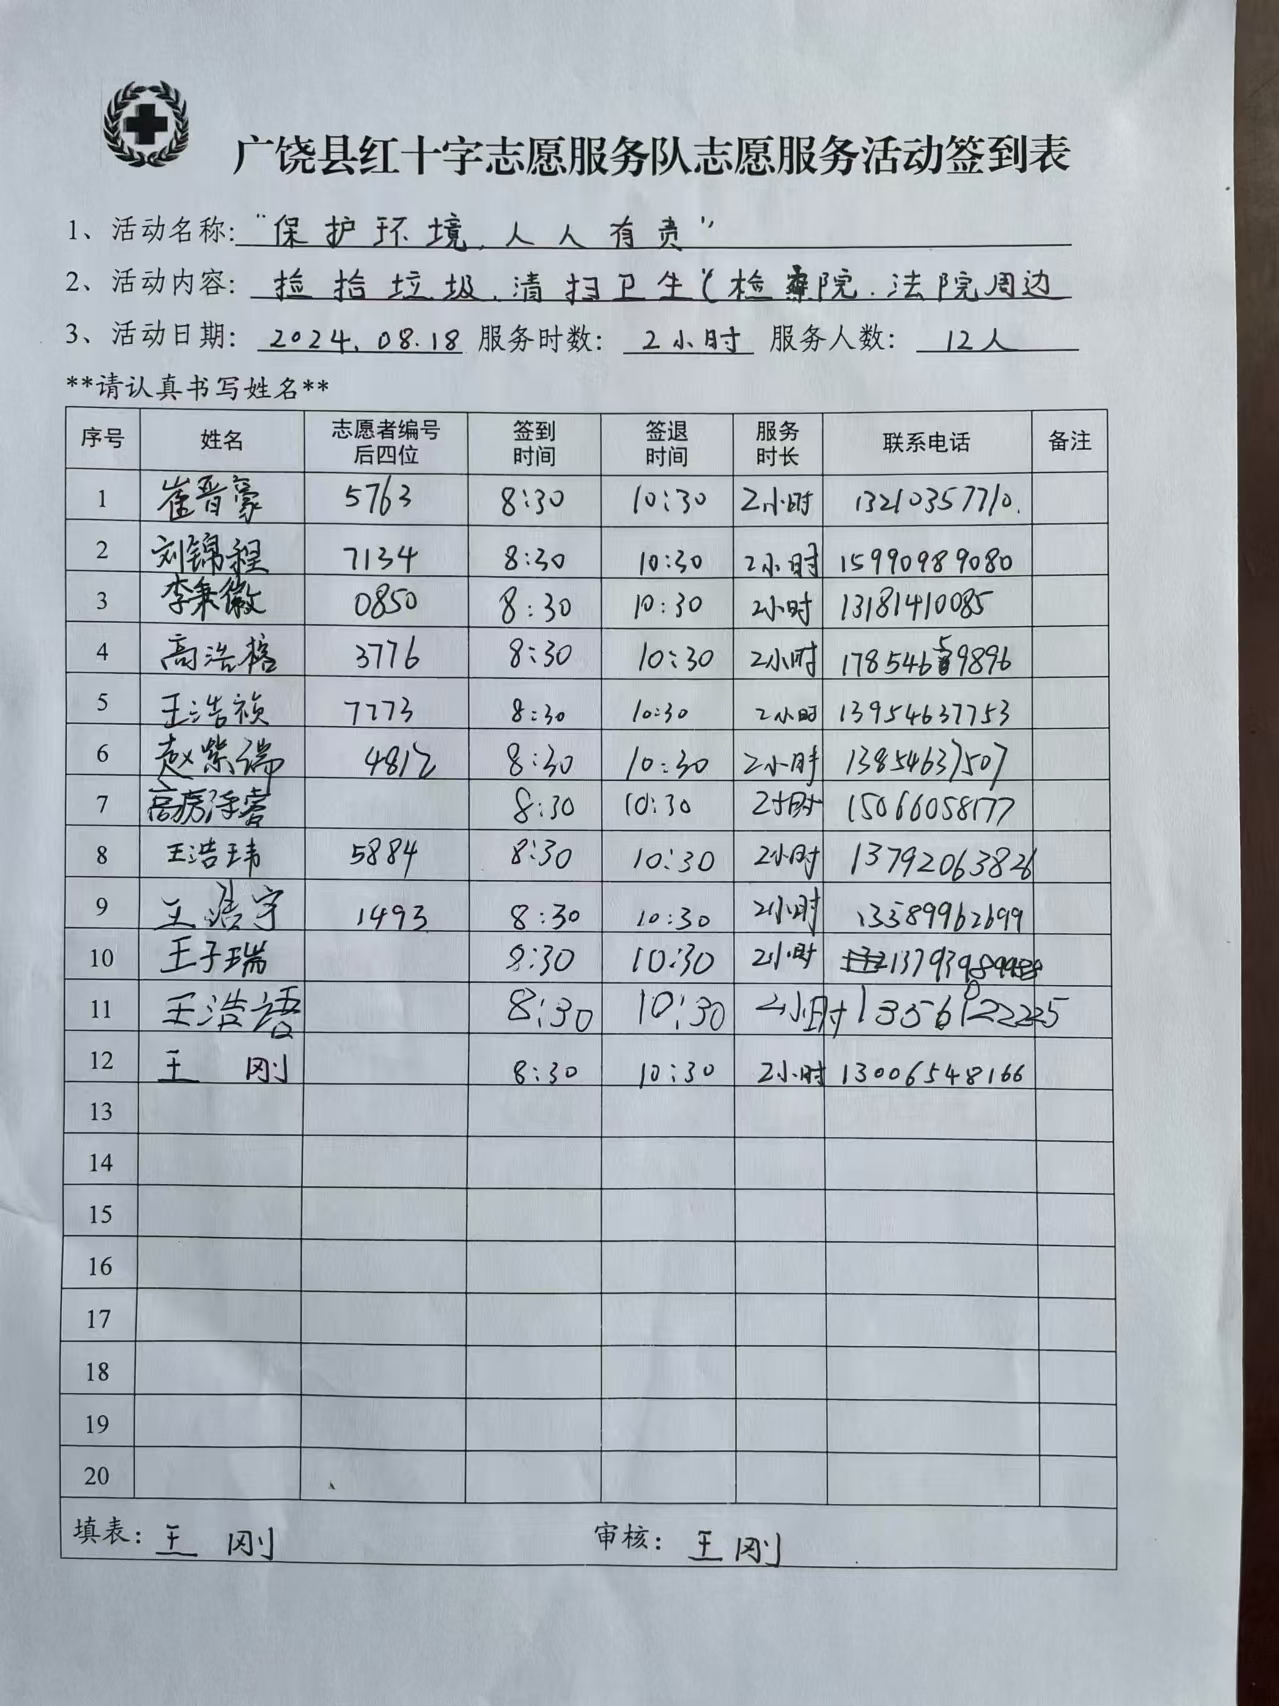 广饶县红十字志愿服务队志愿服务活动签到表
1、活动名称:"保护环境,人人有责"
2、活动内容: 捡拾垃圾,清扫卫生(检察院.法院周边
3、活动日期: 2024.08.18 服务时数: 2小时 服务人数: 12人
**请认真书写姓名**
序号 姓名 志愿者编号后四位 签到时间 签退时间 服务时长 联系电话 备注
1 崔晋豪 5763 8:30 10:30 2小时 13210357710.
2 刘锦程 7134 8:30 10:30 2小时 15990989080
3 李秉徽 0850 8:30 10:30 2小时 13181410085
4 高浩榕 3776 8:30 10:30 2小时 17854659896
5 王浩祯 7273 8:30 10:30 2小时 13954637753
6 赵紫瑞 4812 8:30 10:30 2小时 13854637507
7 8:30 10:30 2小时 15066058177
8 王浩玮 5884 8:30 10:30 2小时 13792063826
9 王浩宇 1493 8:30 10:30 2小时 13589962699
10 王子瑞 8:30 10:30 2小时
11 王浩语 8:30 10:30 2小时
12 王刚 8:30 10:30 2小时 13006548166
13
14
15
16
17
18
19
20
填表: 王刚 审核: 王刚